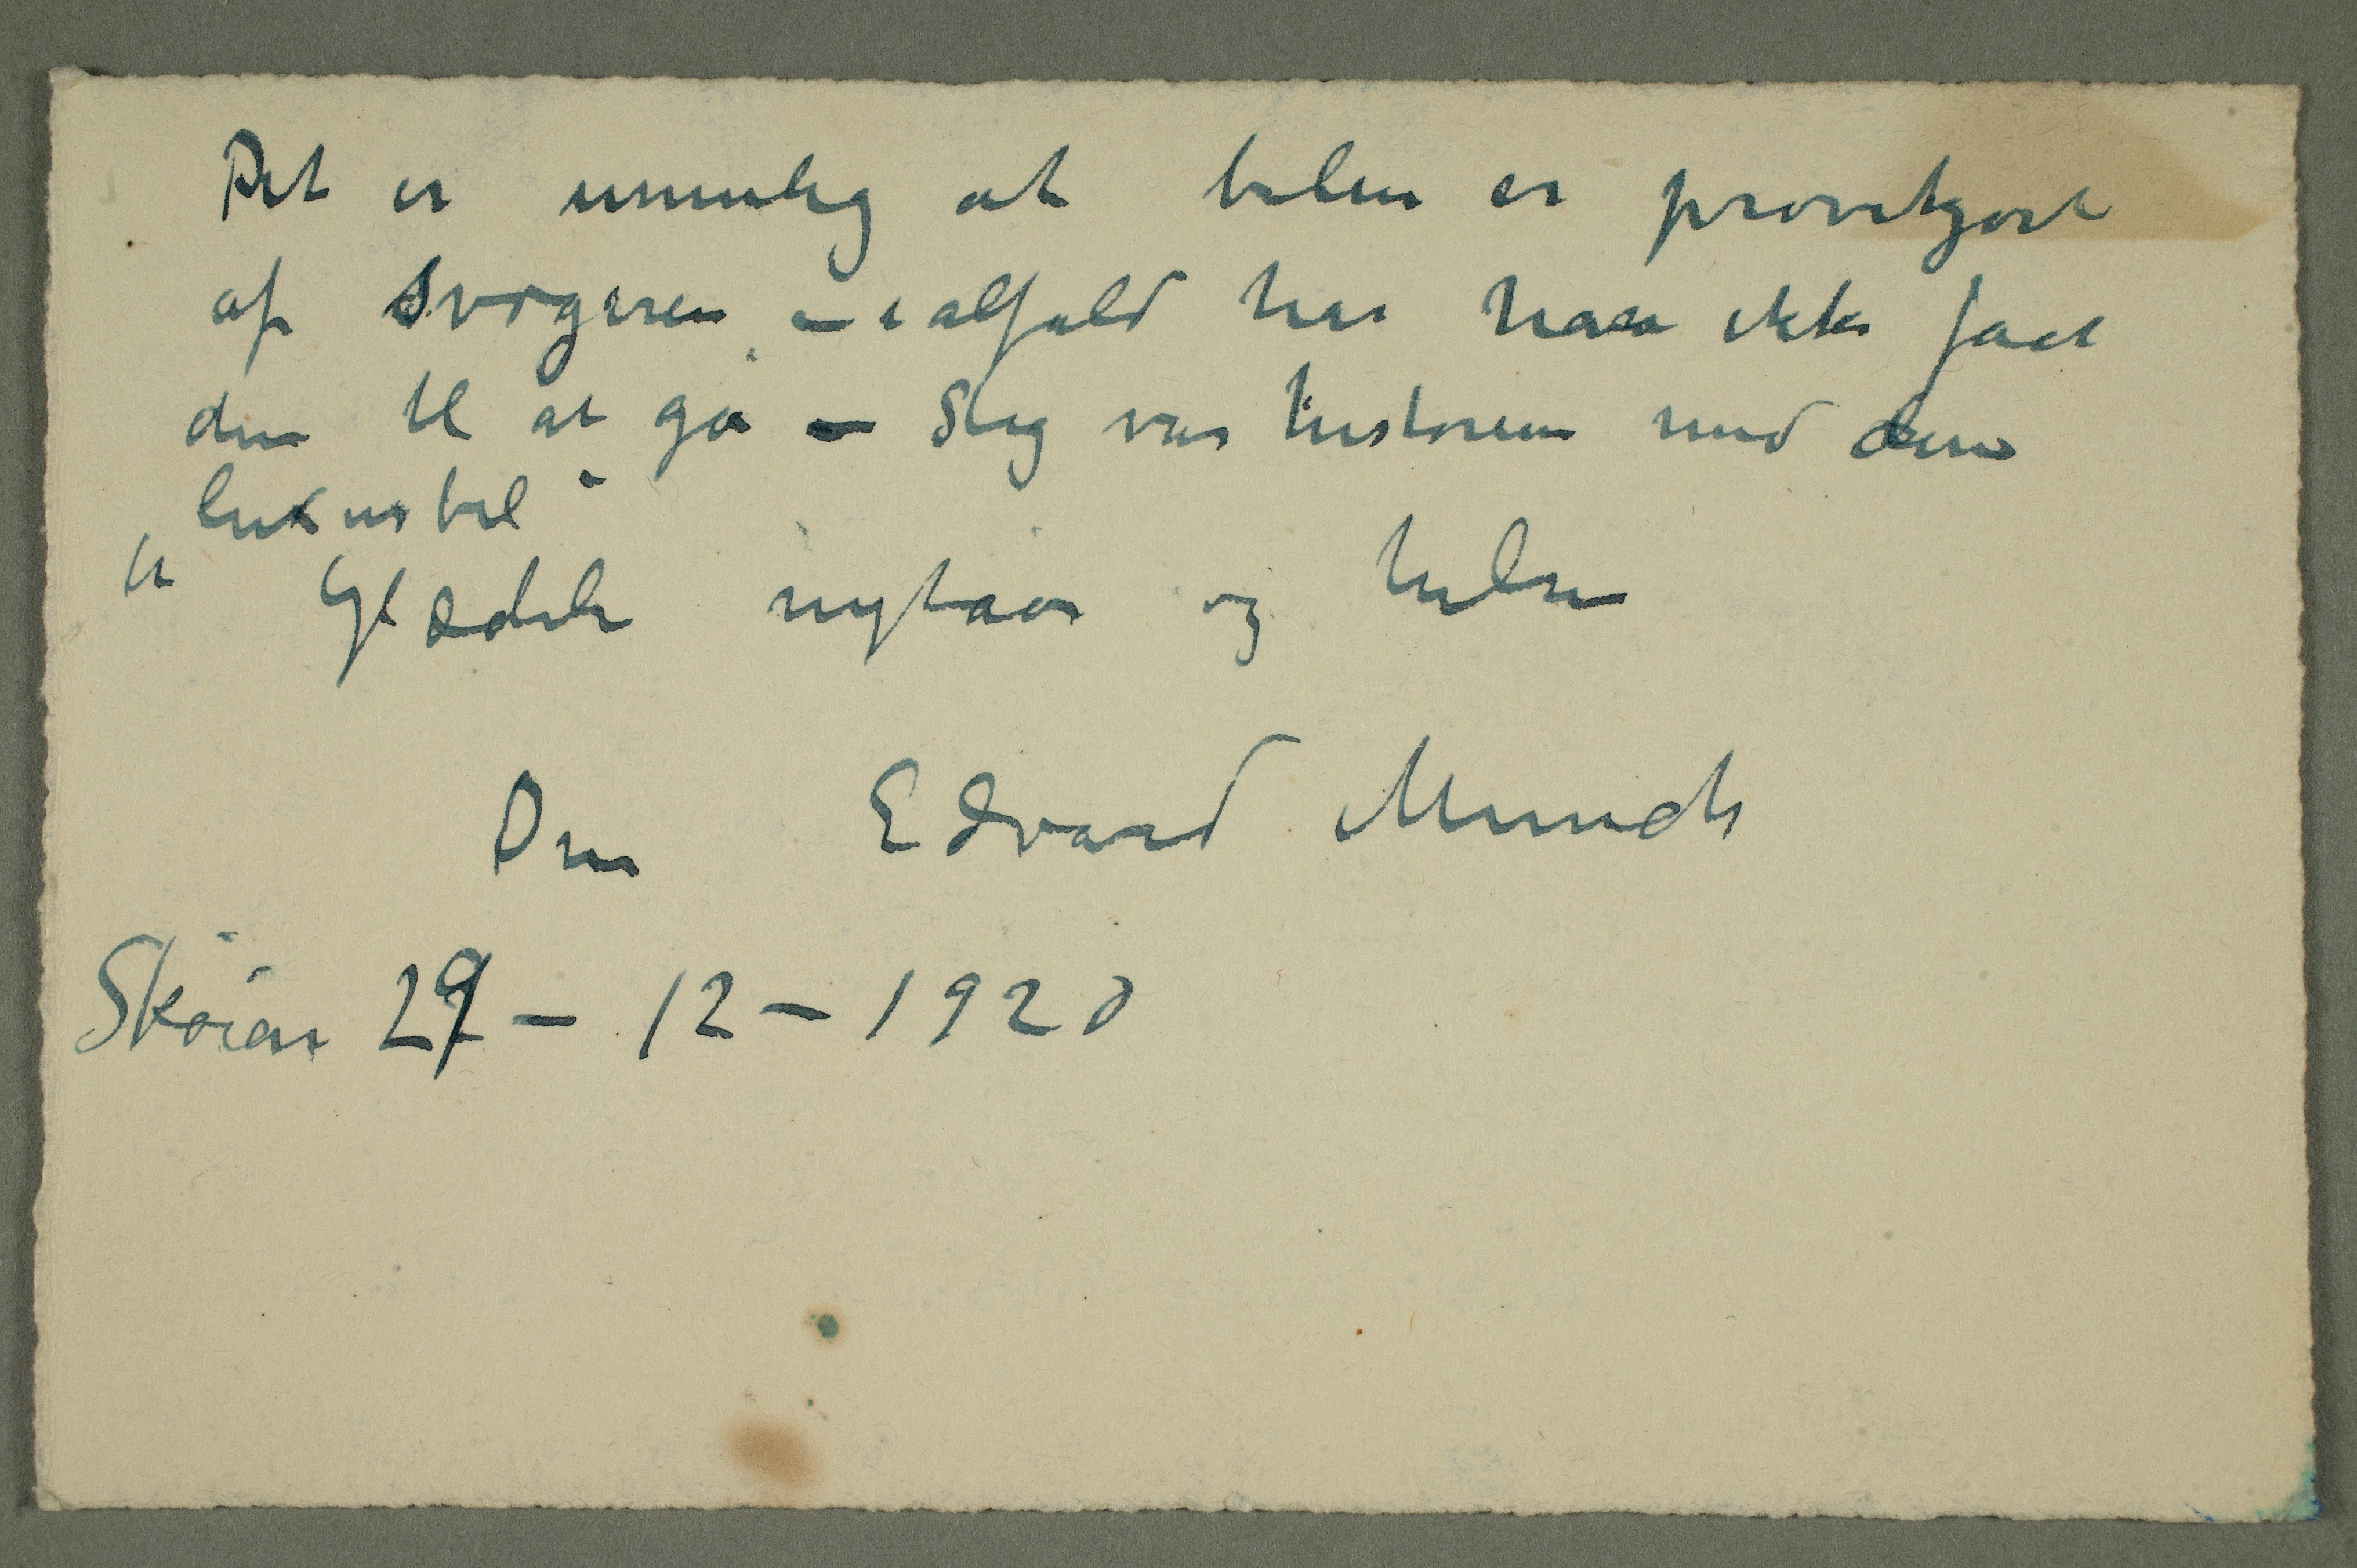 Det er umulig at bilen er prøvekjørt
af Svogeren – ialfald har han ikke fået
den til at gå – Slig var historien med den
„luxusbil“
Glædeli nytaar og hilsen
Din Edvard Munch
Skøien 29 – 12 – 1920